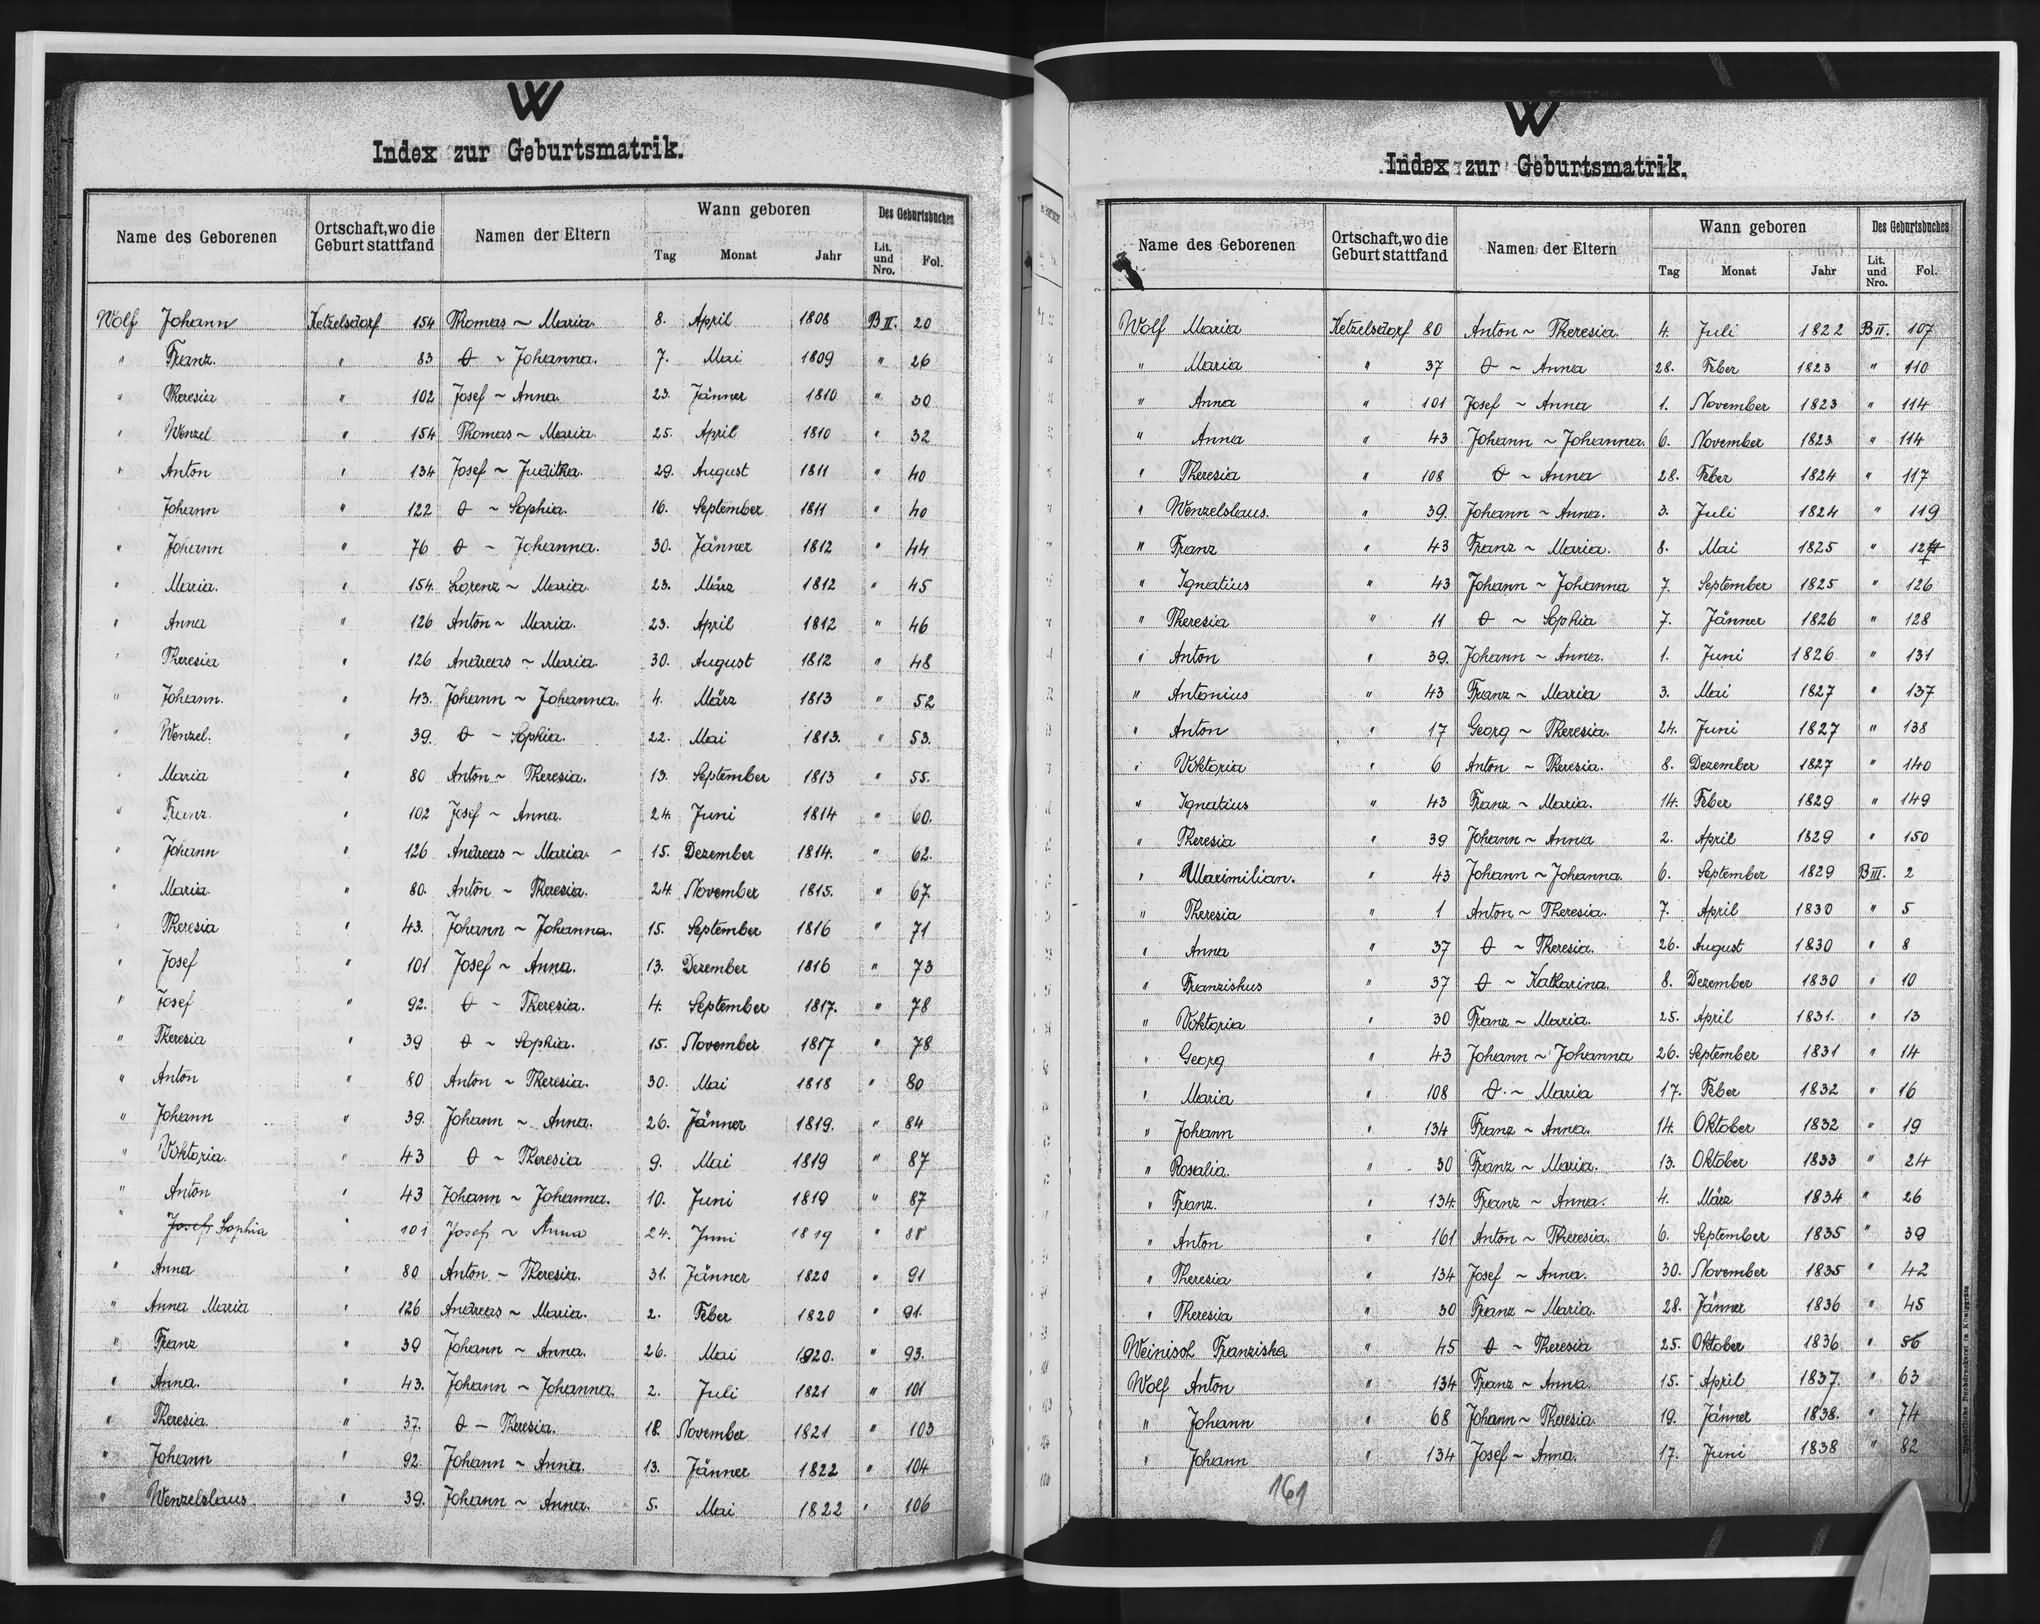 W
Index zur Geburtsmatrik.
Name des Geborenen | Ortschaft, wo die Geburt stattfand | Namen der Eltern | Wann geboren | Des Geburtsbuches
Tag | Monat | Jahr | Lit. und Nro. | Fol.
Wolf Johann Ketzelsdorf 154 Thomas ~ Maria. 8. April 1808 B II. 20
" Franz. " 83 O ~ Johanna. 7. Mai 1809 " 26
" Theresia " 102 Josef ~ Anna. 23. Jänner 1810 " 30
" Wenzel " 154 Thomas ~ Maria. 25. April 1810 " 32
" Anton " 134 Josef ~ Juditha. 29. August 1811 " 40
" Johann " 122 O ~ Sophia. 16. September 1811 " 40
" Johann " 76 O ~ Johanna. 30. Jänner 1812 " 44
" Maria. " 154. Lorenz ~ Maria. 23. März 1812 " 45
" Anna " 126 Anton ~ Maria. 23. April 1812 " 46
" Theresia " 126 Andreas ~ Maria. 30. August 1812 " 48
" Johann. " 43. Johann ~ Johanna. 4. März 1813 " 52
" Wenzel. " 39. O ~ Sophia. 22. Mai 1813. " 53.
" Maria " 80 Anton ~ Theresia. 13. September 1813 " 55.
" Franz. " 102 Josef ~ Anna. 24. Juni 1814 " 60.
" Johann " 126 Andreas ~ Maria. - 15. Dezember 1814. " 62.
" Maria. " 80. Anton ~ Theresia. 24. November 1815. " 67.
" Theresia " 43. Johann ~ Johanna. 15. September 1816 " 71
" Josef " 101 Josef ~ Anna. 13. Dezember 1816 " 73
" Josef " 92. O ~ Theresia. 4. September 1817. " 78
" Theresia " 39 O ~ Sophia. 15. November 1817 " 78
" Anton " 80 Anton ~ Theresia. 30. Mai 1818 " 80
" Johann " 39. Johann ~ Anna. 26. Jänner 1819. " 84
" Viktoria. " 43 O ~ Theresia 9. Mai 1819 " 87
" Anton " 43 Johann ~ Johanna. 10. Juni 1819 " 87
" Josef Sophia " 101 Josef ~ Anna 24. Juni 1819 " 88
" Anna " 80 Anton ~ Theresia. 31. Jänner 1820 " 91
" Anna Maria " 126 Andreas ~ Maria. 2. Feber 1820 " 91.
" Franz " 39 Johann ~ Anna. 26. Mai 1820. " 93.
" Anna. " 43. Johann ~ Johanna. 2. Juli 1821 " 101
" Theresia. " 37. O ~ Theresia. 18. November 1821 " 103
" Johann " 92. Johann ~ Anna. 13. Jänner 1822 " 104
" Wenzelslaus " 39. Johann ~ Anna. 5. Mai 1822 " 106
W
Index zur Geburtsmatrik.
Name des Geborenen | Ortschaft, wo die Geburt stattfand | Namen der Eltern | Wann geboren | Des Geburtsbuches
Tag | Monat | Jahr | Lit. und Nro. | Fol.
Wolf Maria Ketzelsdorf 80 Anton ~ Theresia. 4. Juli 1822 B II. 107
" Maria " 37 O ~ Anna 28. Feber 1823 " 110
" Anna " 101 Josef ~ Anna 1. November 1823 " 114
" Anna " 43 Johann ~ Johanna. 6. November 1823 " 114
" Theresia " 108 O ~ Anna 28. Feber 1824 " 117
" Wenzelslaus. " 39. Johann ~ Anna. 3. Juli 1824 " 119
" Franz " 43 Franz ~ Maria. 8. Mai 1825 "
" Ignatius " 43 Johann ~ Johanna 7. September 1825 " 126
" Theresia " 11 O ~ Sophia 7. Jänner 1826 " 128
" Anton " 39. Johann ~ Anna. 1. Juni 1826 " 131
" Antonius " 43 Franz ~ Maria 3. Mai 1827 " 137
" Anton " 17 Georg ~ Theresia. 24. Juni 1827 " 138
" Viktoria " 6 Anton ~ Theresia. 8. Dezember 1827 " 140
" Ignatius " 43 Franz ~ Maria. 14. Feber 1829 " 149
" Theresia " 39 Johann ~ Anna 2. April 1829 " 150
" Maximilian. " 43 Johann ~ Johanna. 6. September 1829 B III. 2
" Theresia " 1 Anton ~ Theresia. 7. April 1830 " 5
" Anna " 37 O ~ Theresia. 26. August 1830 " 8
" Franziskus " 37 O ~ Katharina. 8. Dezember 1830 " 10
" Viktoria " 30 Franz ~ Maria. 25. April 1831. " 13
" Georg " 43 Johann ~ Johanna 26. September 1831 " 14
" Maria " 108 O ~ Maria 17. Feber 1832 " 16
" Johann " 134 Franz ~ Anna. 14. Oktober 1832 " 19
" Rosalia. " 30 Franz ~ Maria. 13. Oktober 1833 " 24
" Franz. " 134. Franz ~ Anna. 4. März 1834 " 26
" Anton " 161 Anton ~ Theresia. 6. September 1835 " 39
" Theresia " 134 Josef ~ Anna. 30. November 1835 " 42
" Theresia " 30 Franz ~ Maria. 28. Jänner 1836 " 45
Weinisch Franziska " 45 O ~ Theresia 25. Oktober 1836 " 56
Wolf Anton " 134 Franz ~ Anna. 15. April 1837. " 63
" Johann " 68 Johann ~ Theresia. 19. Jänner 1838. " 74
" Johann " 134 Josef ~ Anna. 17. Juni 1838 " 82
161